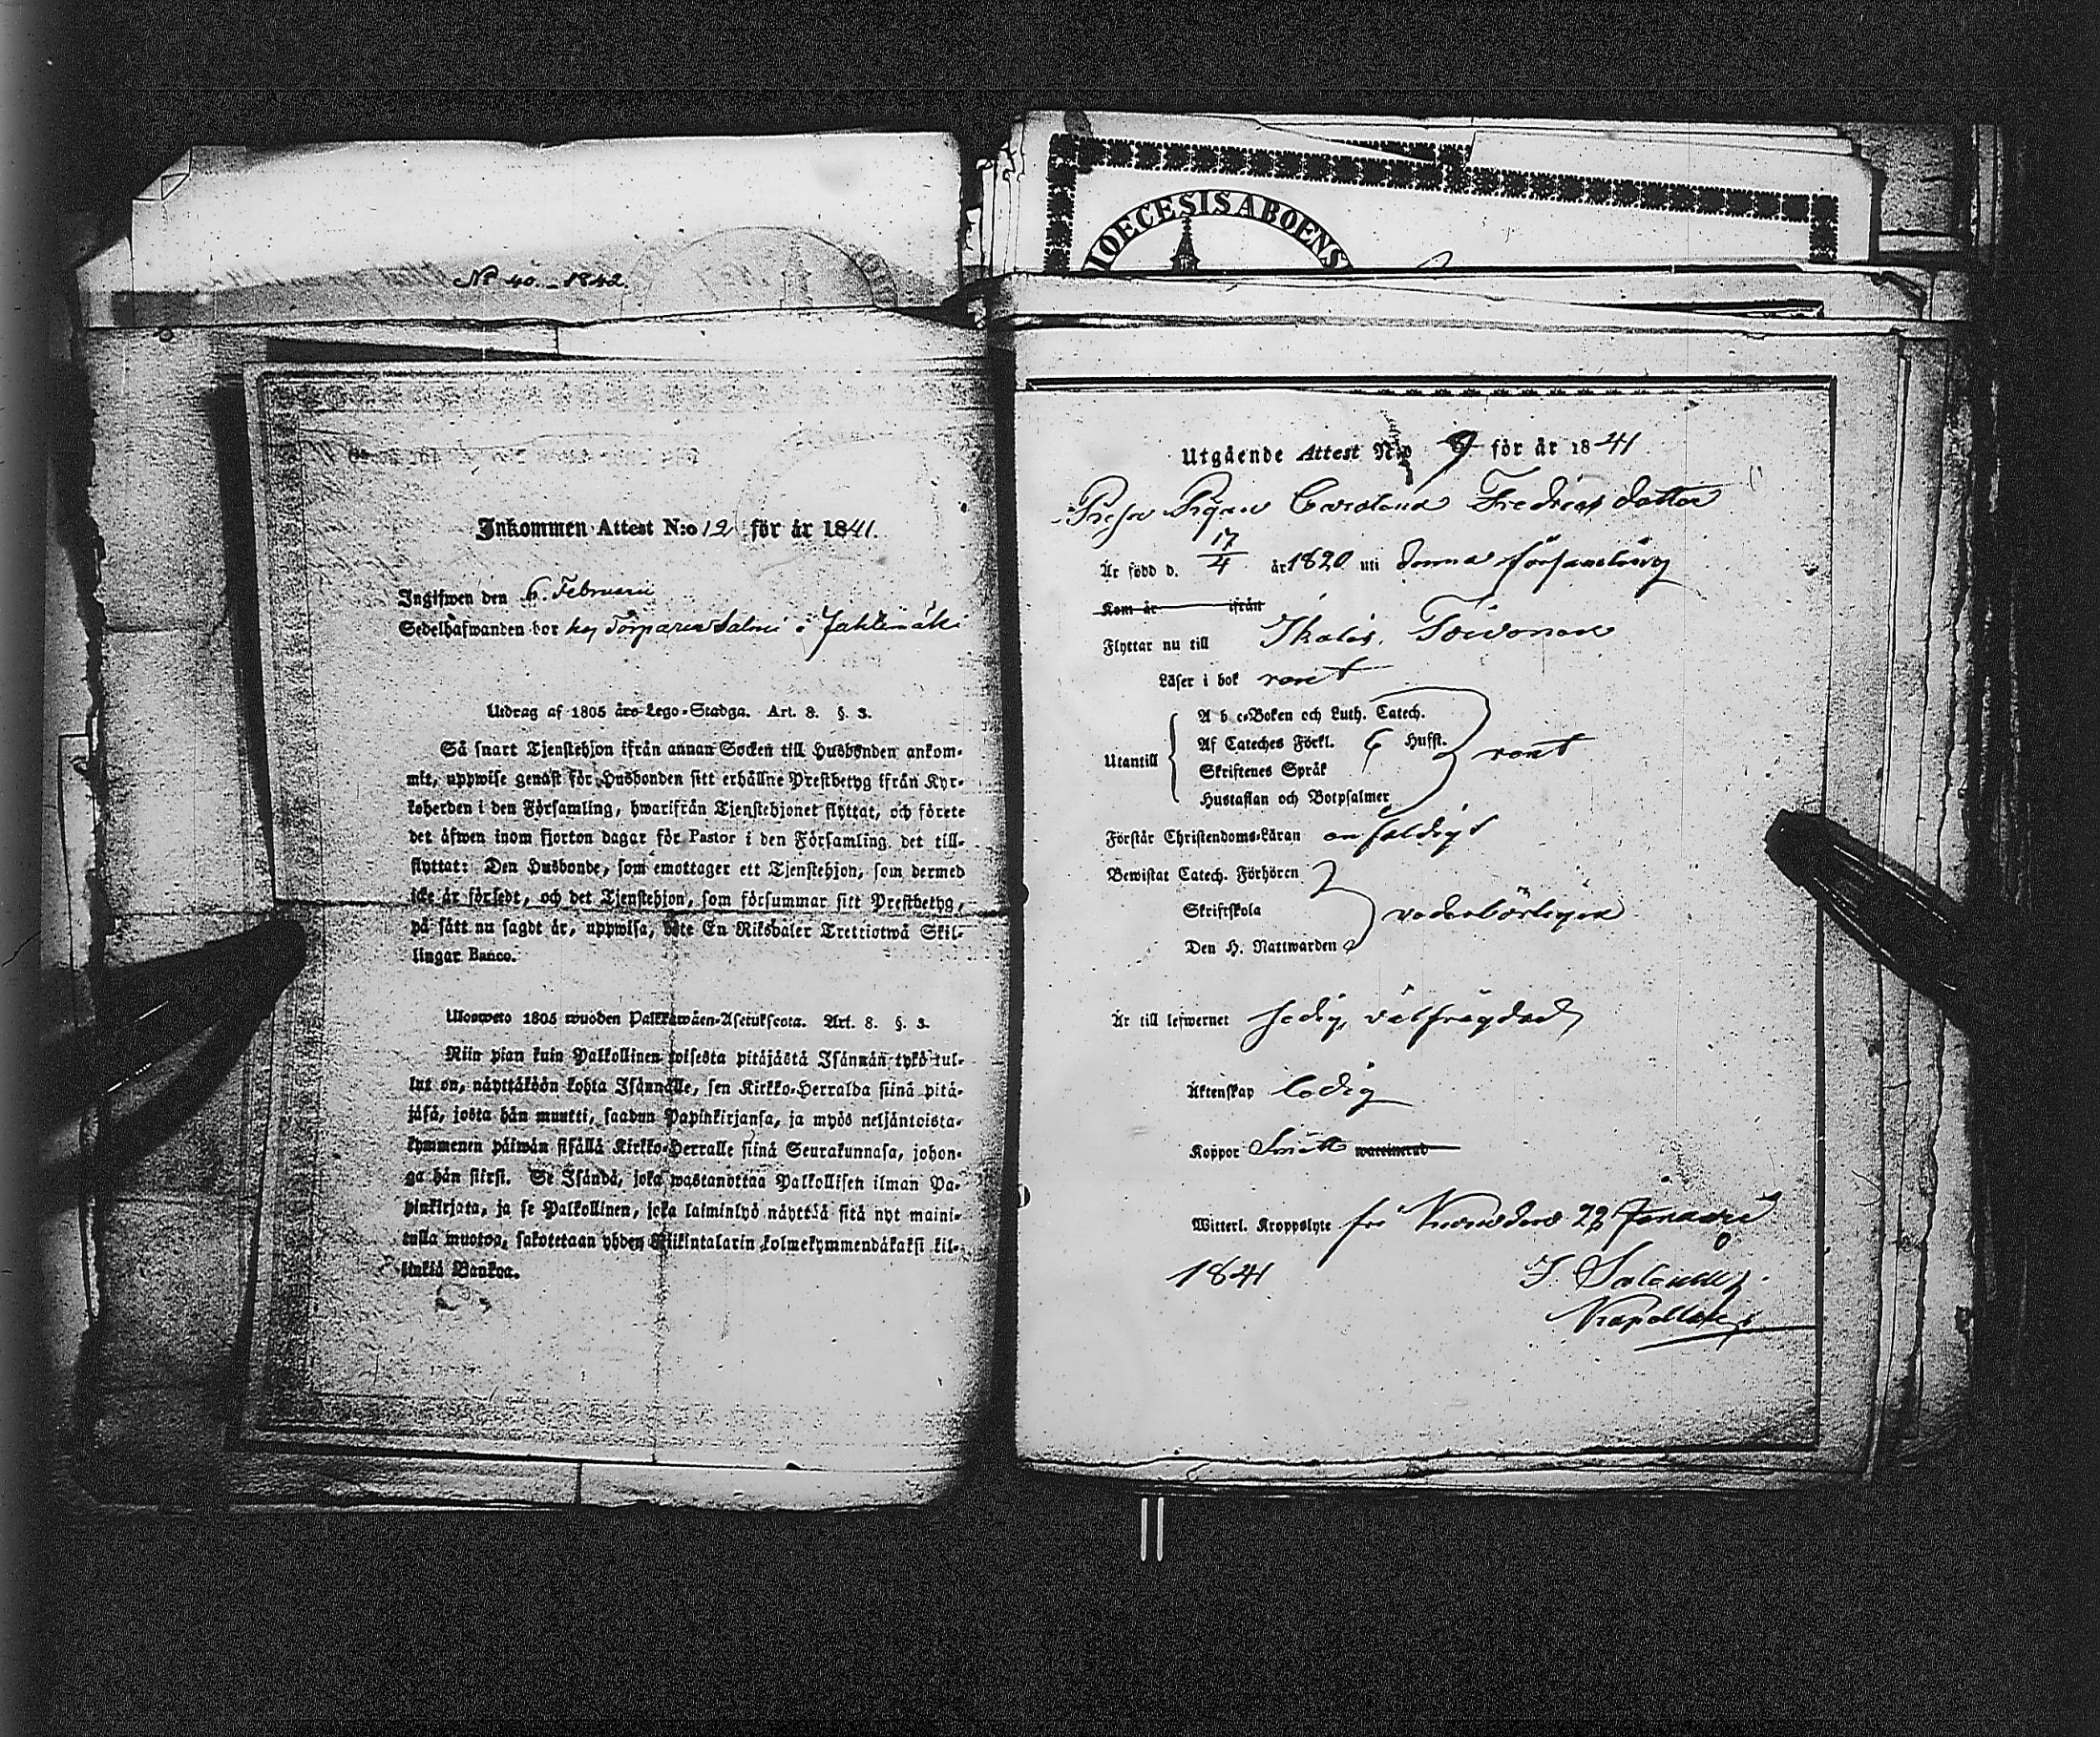 No 40. 1842.
Inkommen Attest N:o 12 för år 1841.
Ingifwen den 6. Februarii
Sedelhafwanden bor hos Torparen Salmi i
Utdrag af 1805 års Lego-Stadga. Art. 8. §. 3.
Så snart Tjenstehjon ifrån annan Socken till Husbonden ankom-
mit, uppwise genast för Husbonden sitt erhållne Prestbetyg ifrån Kyr-
koherden i den Församling, hwarifrån Tjenstehjonet flyttat, och förete
det äfwen inom fjorton dagar för Pastor i den Församling det till-
flyttat: Den Husbonde, som emottager ett Tjenstehjon, som dermed
icke är försedt, och det Tjenstehjon, som försummar sitt Prestbetyg,
på sätt nu sagdt är, uppwisa, böte En Riksdaler Trettiotwå Skil-
lingar Banco.
Ulosweto 1805 wuoden Palkkawäen-Asetuksesta. Art. 8. §. 3.
Niin pian kuin Palkollinen toisesta pitäjästä Isännän tykö tul-
lut on, näyttäköön kohta Isännälle, sen Kirkko-Herralda siinä pitä-
jäsä, josta hän muutti, saadun Papinkirjansa, ja myös neljäntoista-
kymmenen päiwän sisällä Kirkko-Herralle siinä Seurakunnasa, johon-
ga hän siirsi. Se Isändä, joka wastanottaa Palkollisen ilman Pa-
pinkirjata, ja se Palkollinen, joka laiminlyö näyttää sitä nyt maini-
tulla muotoa, sakotetaan yhden Riikintalarin kolmekymmendäkaksi kil-
linkiä Bankoa.
DIOECESIS ABOENS
Utgående Attest N:o 9 för år 1841
Pigan Carolina Fredriks dotter
Är född d. 17/4 år 1820 uti denna församling
Kom år ifrån
Flyttar nu till Ikalis,
Läser i bok rent
A b c-Boken och Luth. Catech.
Utantill Af Cateches Förkl. 6 Hufst. rent
Skriftenes Språk
Hustaflan och Botpsalmer
Förstår Christendoms-Läran enfaldigt
Bewistat Catech. Förhören
Skriftskola wederbörligen
Den H. Nattwarden
Är till lefwernet sedig, välfrägdad
Äktenskap ledig
Koppor Smitt waccinerad
Witterl. Kroppslyte fri 22 Januarii
1841 J.
Kapellan